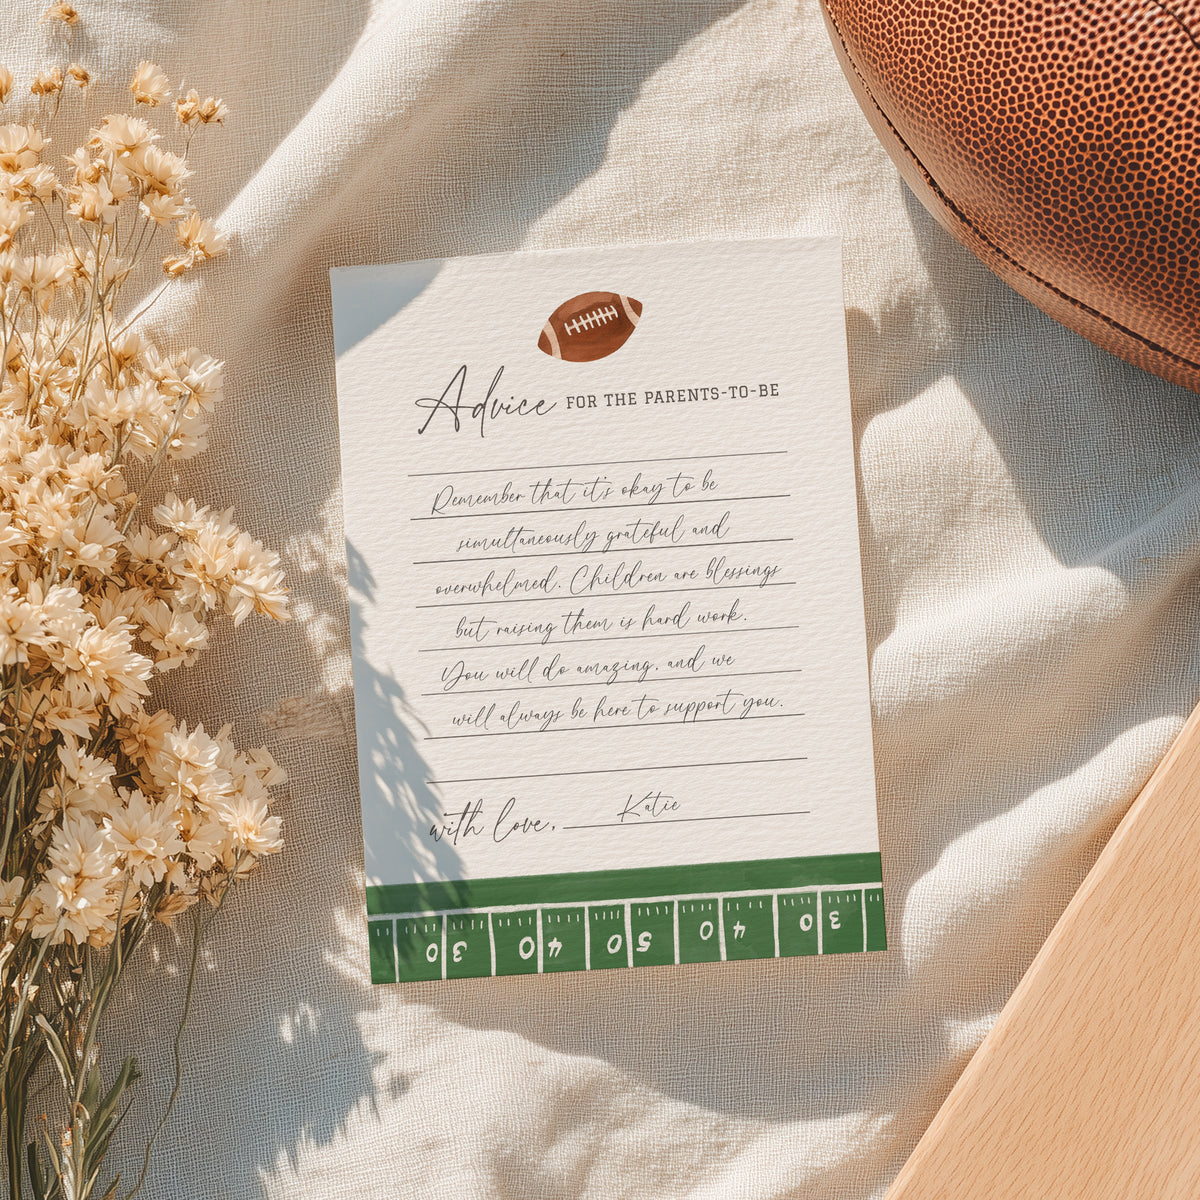 Advice FOR THE PARENTS-TO-BE
Remember that it's okay to be
simultaneously grateful and
overwhelmed. Children are blessings
but raising them is hard work.
You will do amazing, and we
will always be here to support you.
with love, Katie
30 40 50 40 30